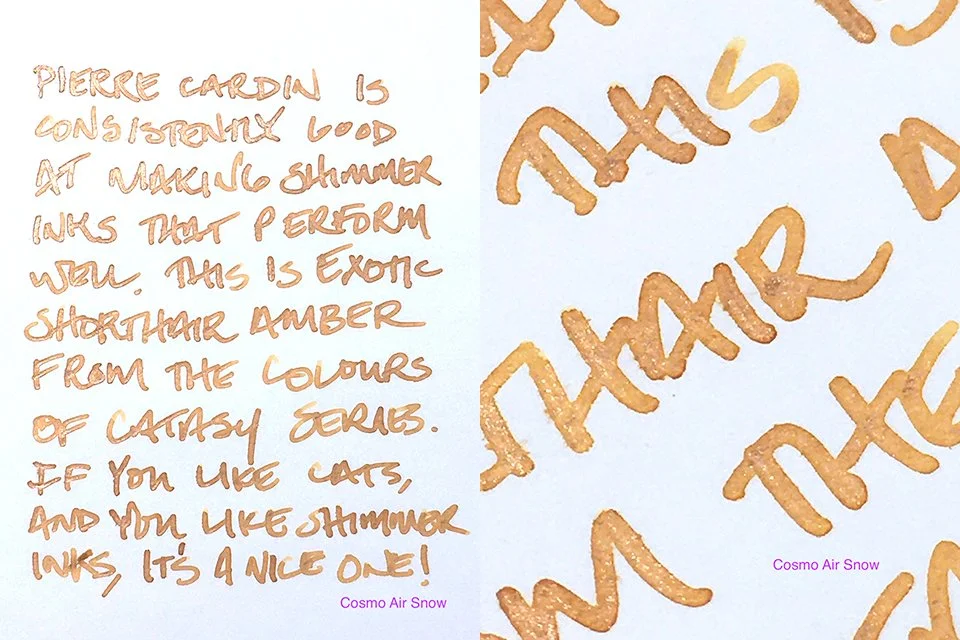 PIERRE CARDIN IS
CONSISTENTLY GOOD
AT MAKING SHIMMER
INKS THAT PERFORM
WELL. THIS IS EXOTIC
SHORTHAIR AMBER
FROM THE COLOURS
OF CATASY SERIES.
IF YOU LIKE CATS,
AND YOU LIKE SHIMMER
INKS, IT'S A NICE ONE!
Cosmo Air Snow
THIS
THAIR A
THE
M
Cosmo Air Snow